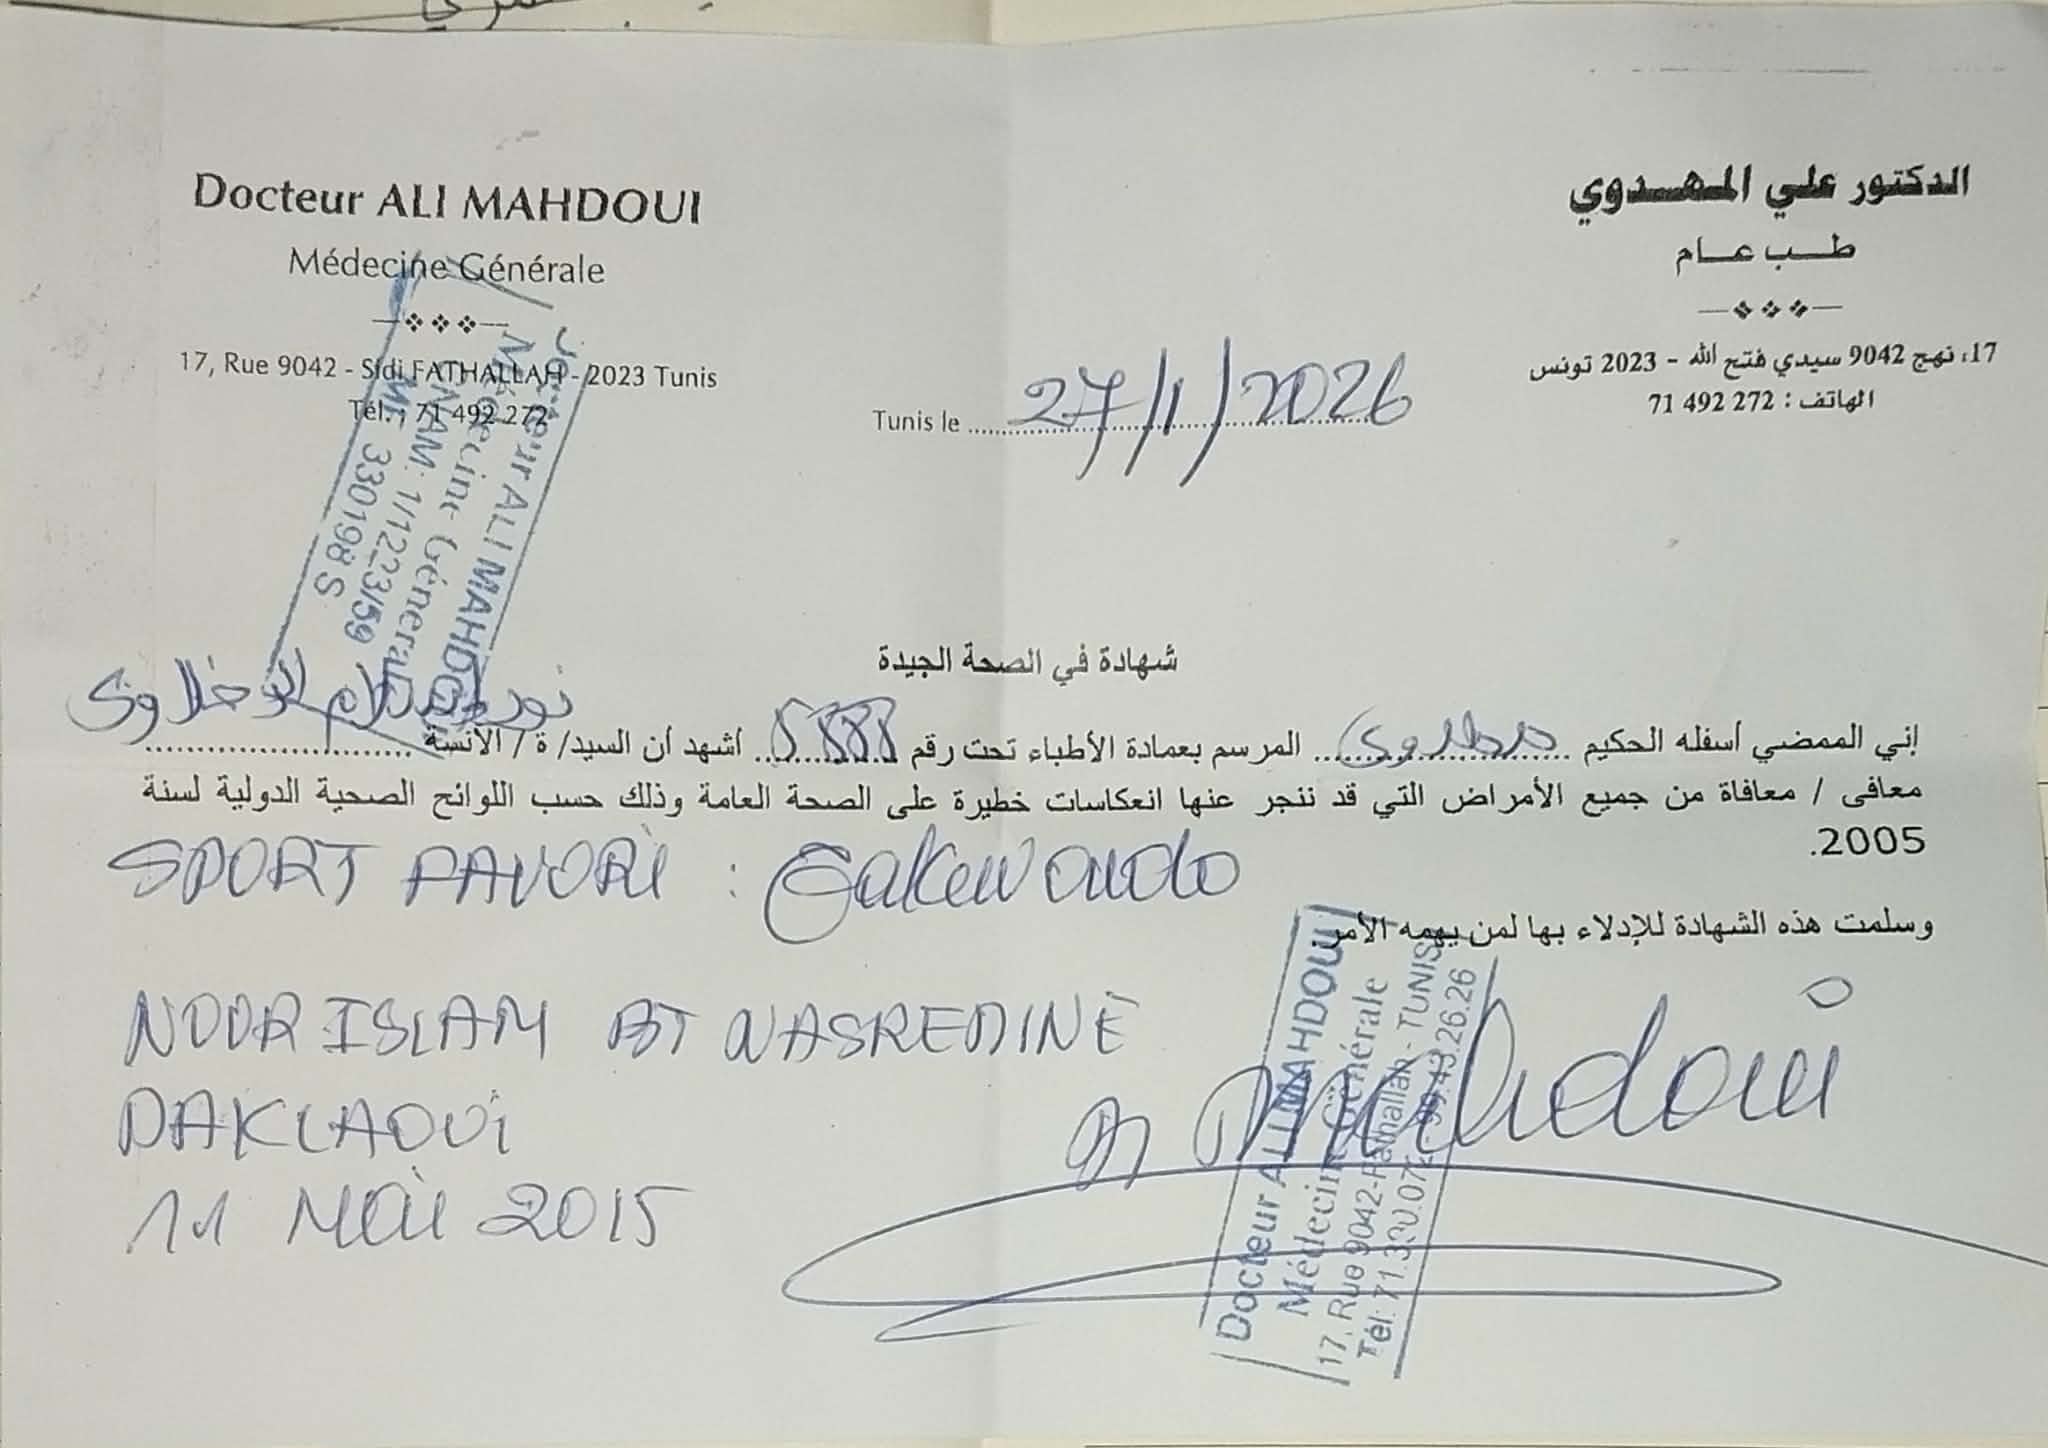 Docteur ALI MAHDOUI
Médecine Générale
17, Rue 9042 - Sidi FATHALLAH - 2023 Tunis
Tél. : 71 492 272
الدكتور علي المهدوي
طب عام
17، نهج 9042 سيدي فتح الله - 2023 تونس
الهاتف : 272 492 71
Tunis le 27/1/2026
Docteur ALI MAHDOUI
Médecine Générale
CNAM: 1/1223/59
MF 330198 S
شهادة في الصحة الجيدة
إني الممضي أسفله الحكيم المرسم بعمادة الأطباء تحت رقم أشهد أن السيد/ ة / الآنسة نور الاسلام الدخلاوي
معافى / معافاة من جميع الأمراض التي قد ننجر عنها انعكاسات خطيرة على الصحة العامة وذلك حسب اللوائح الصحية الدولية لسنة
2005.
SPORT FAVORI : Taekwondo
وسلمت هذه الشهادة للإدلاء بها لمن يهمه الأمر.
NOOR ISLAM BT NASREDINE
DAKLAOUI
11 MAI 2015
Dr Mahdoui
Docteur ALI MAHDOUI
Médecine Générale
17, Rue 9042-Fathallah - TUNIS